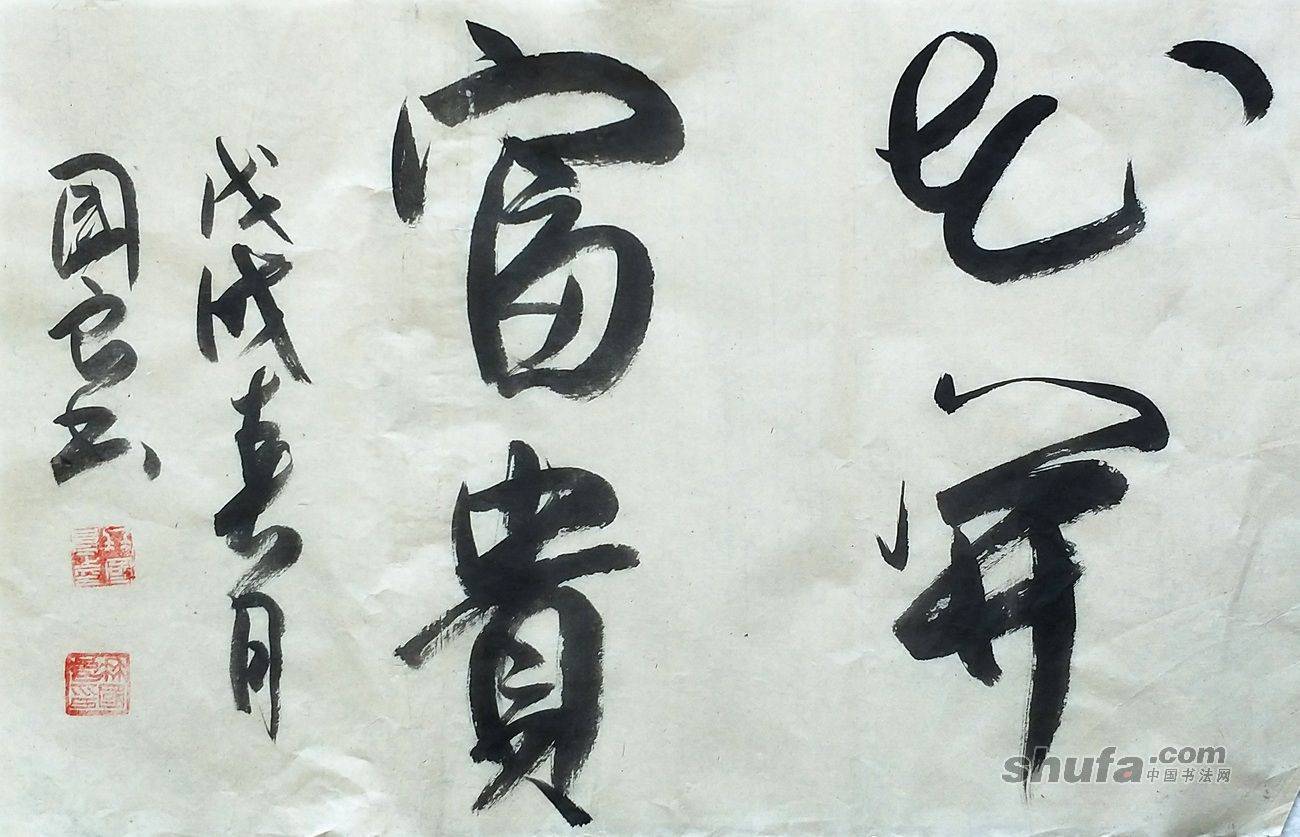 花開
富貴
戊戌春月
國 书
shufa.com
中国书法网